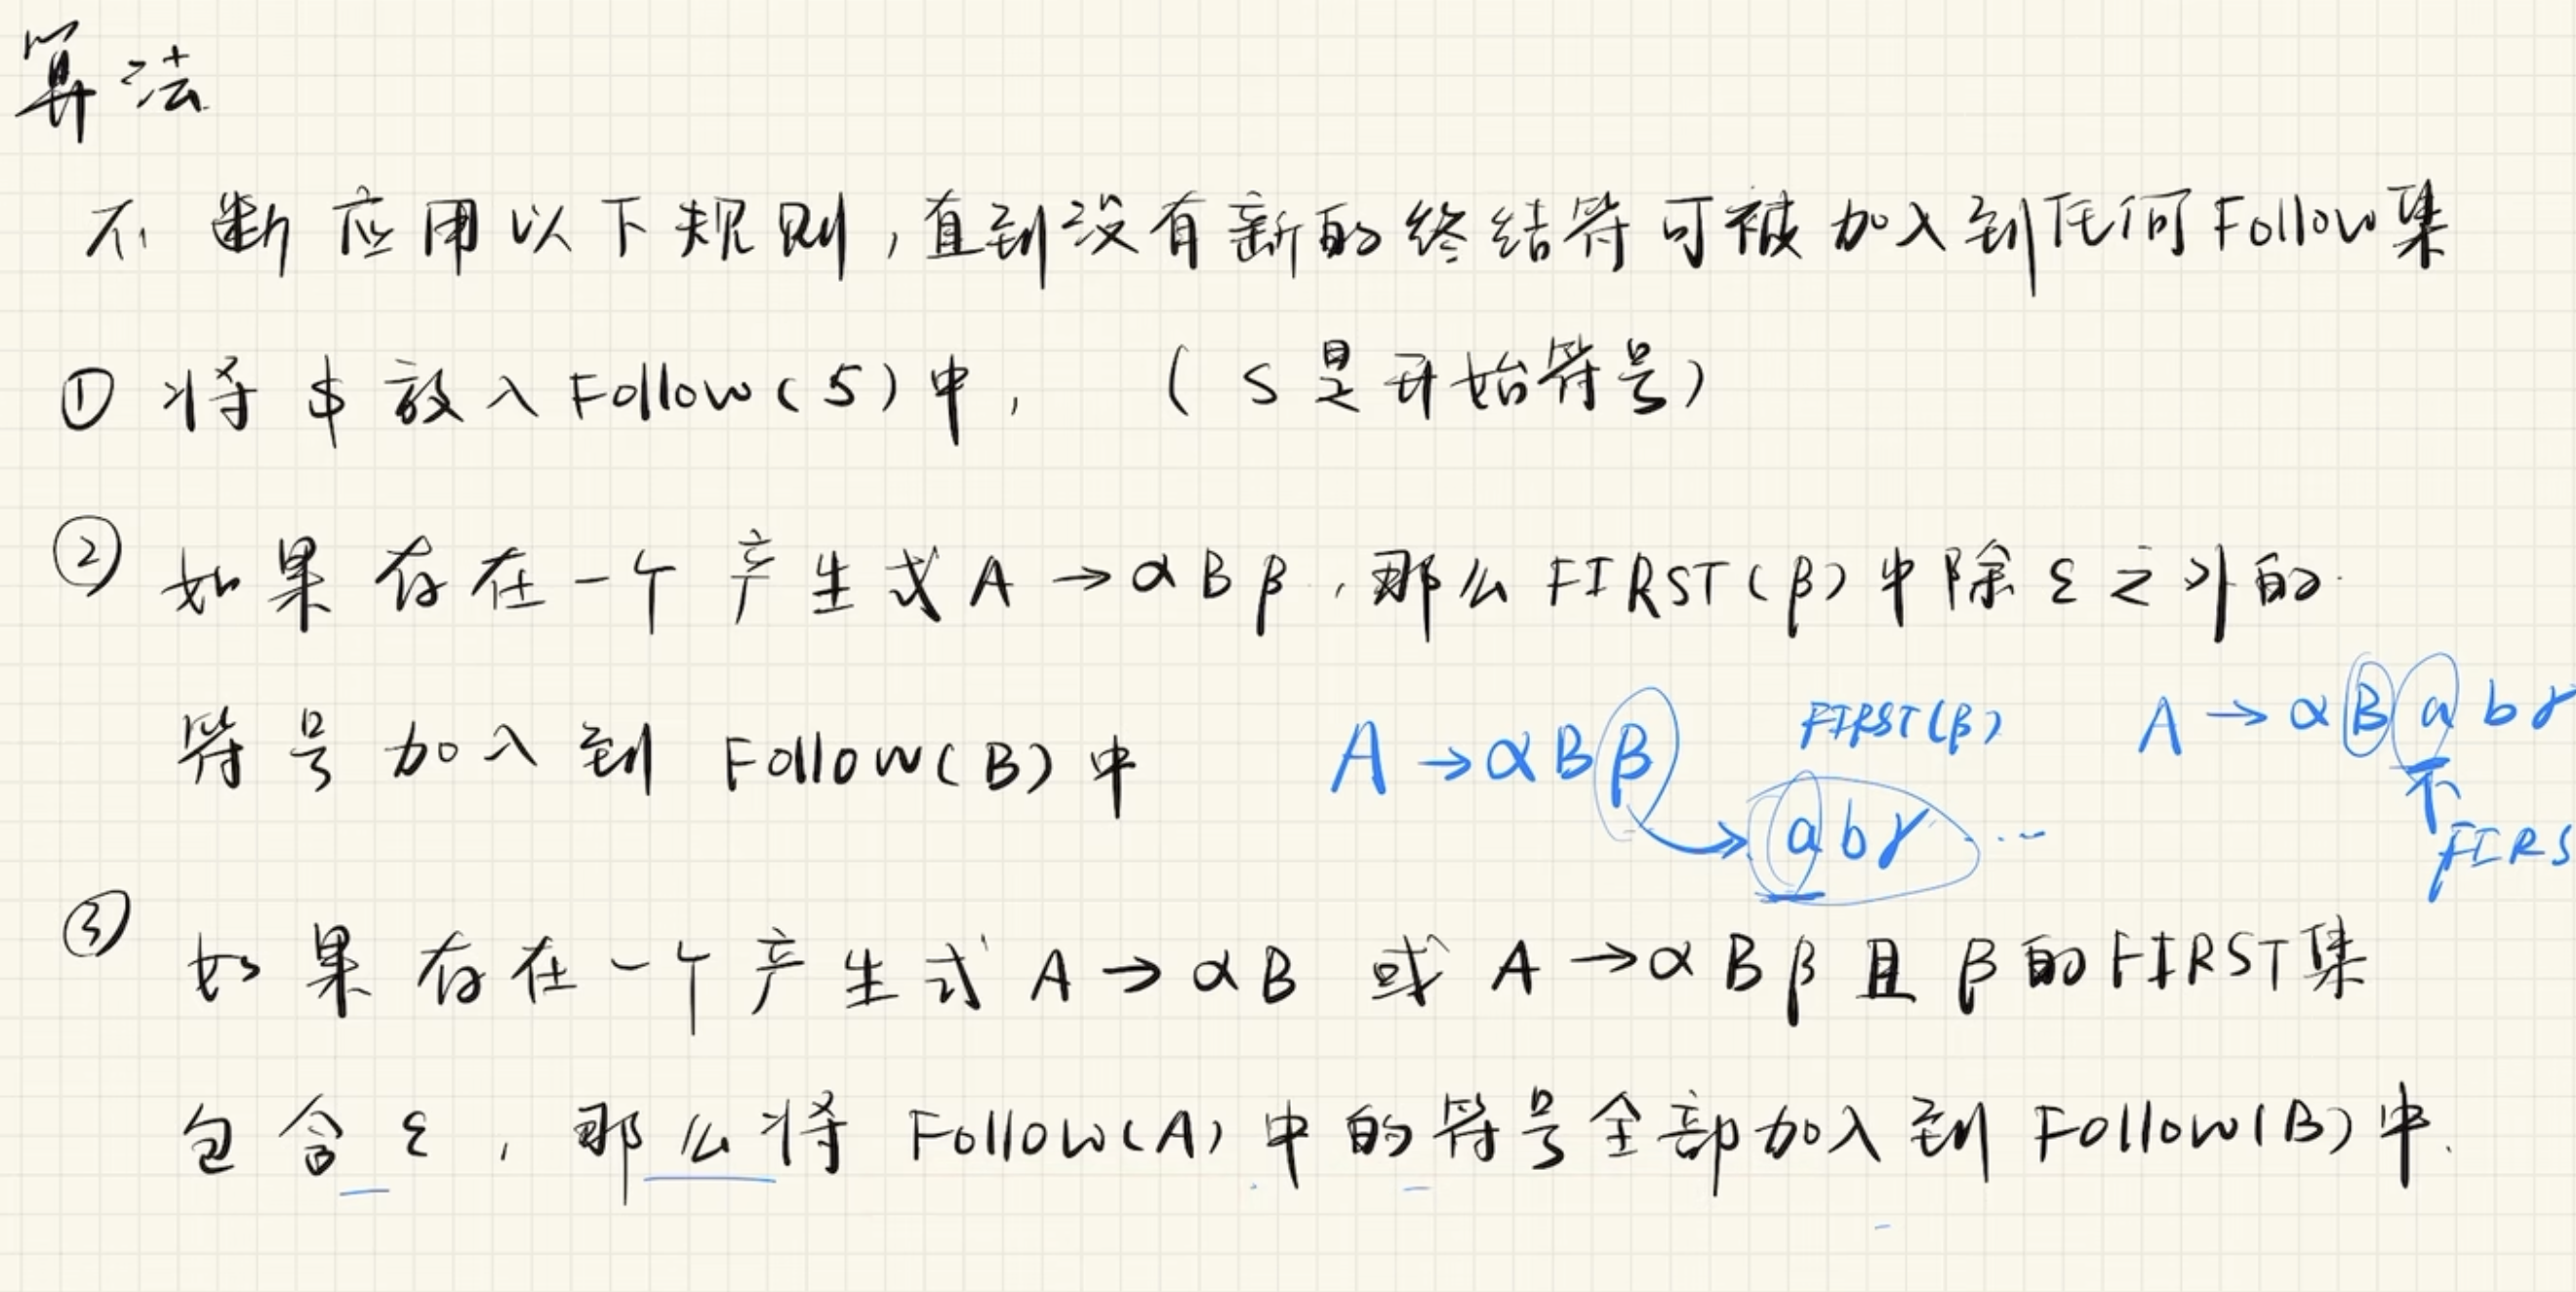 算法
不断应用以下规则,直到没有新的终结符可被加入到任何Follow集
① 将 $ 放入 Follow(S)中, (S是开始符号)
② 如果存在一个产生式 A → αBβ, 那么 FIRST(β)中除ε之外的
符号加入到 Follow(B)中
A → αBβ
FIRST(β)
abγ ...
A → αBabγ
FIRS
③ 如果存在一个产生式 A → αB 或 A → αBβ 且 β的FIRST集
包含ε, 那么将 Follow(A)中的符号全部加入到 Follow(B)中.